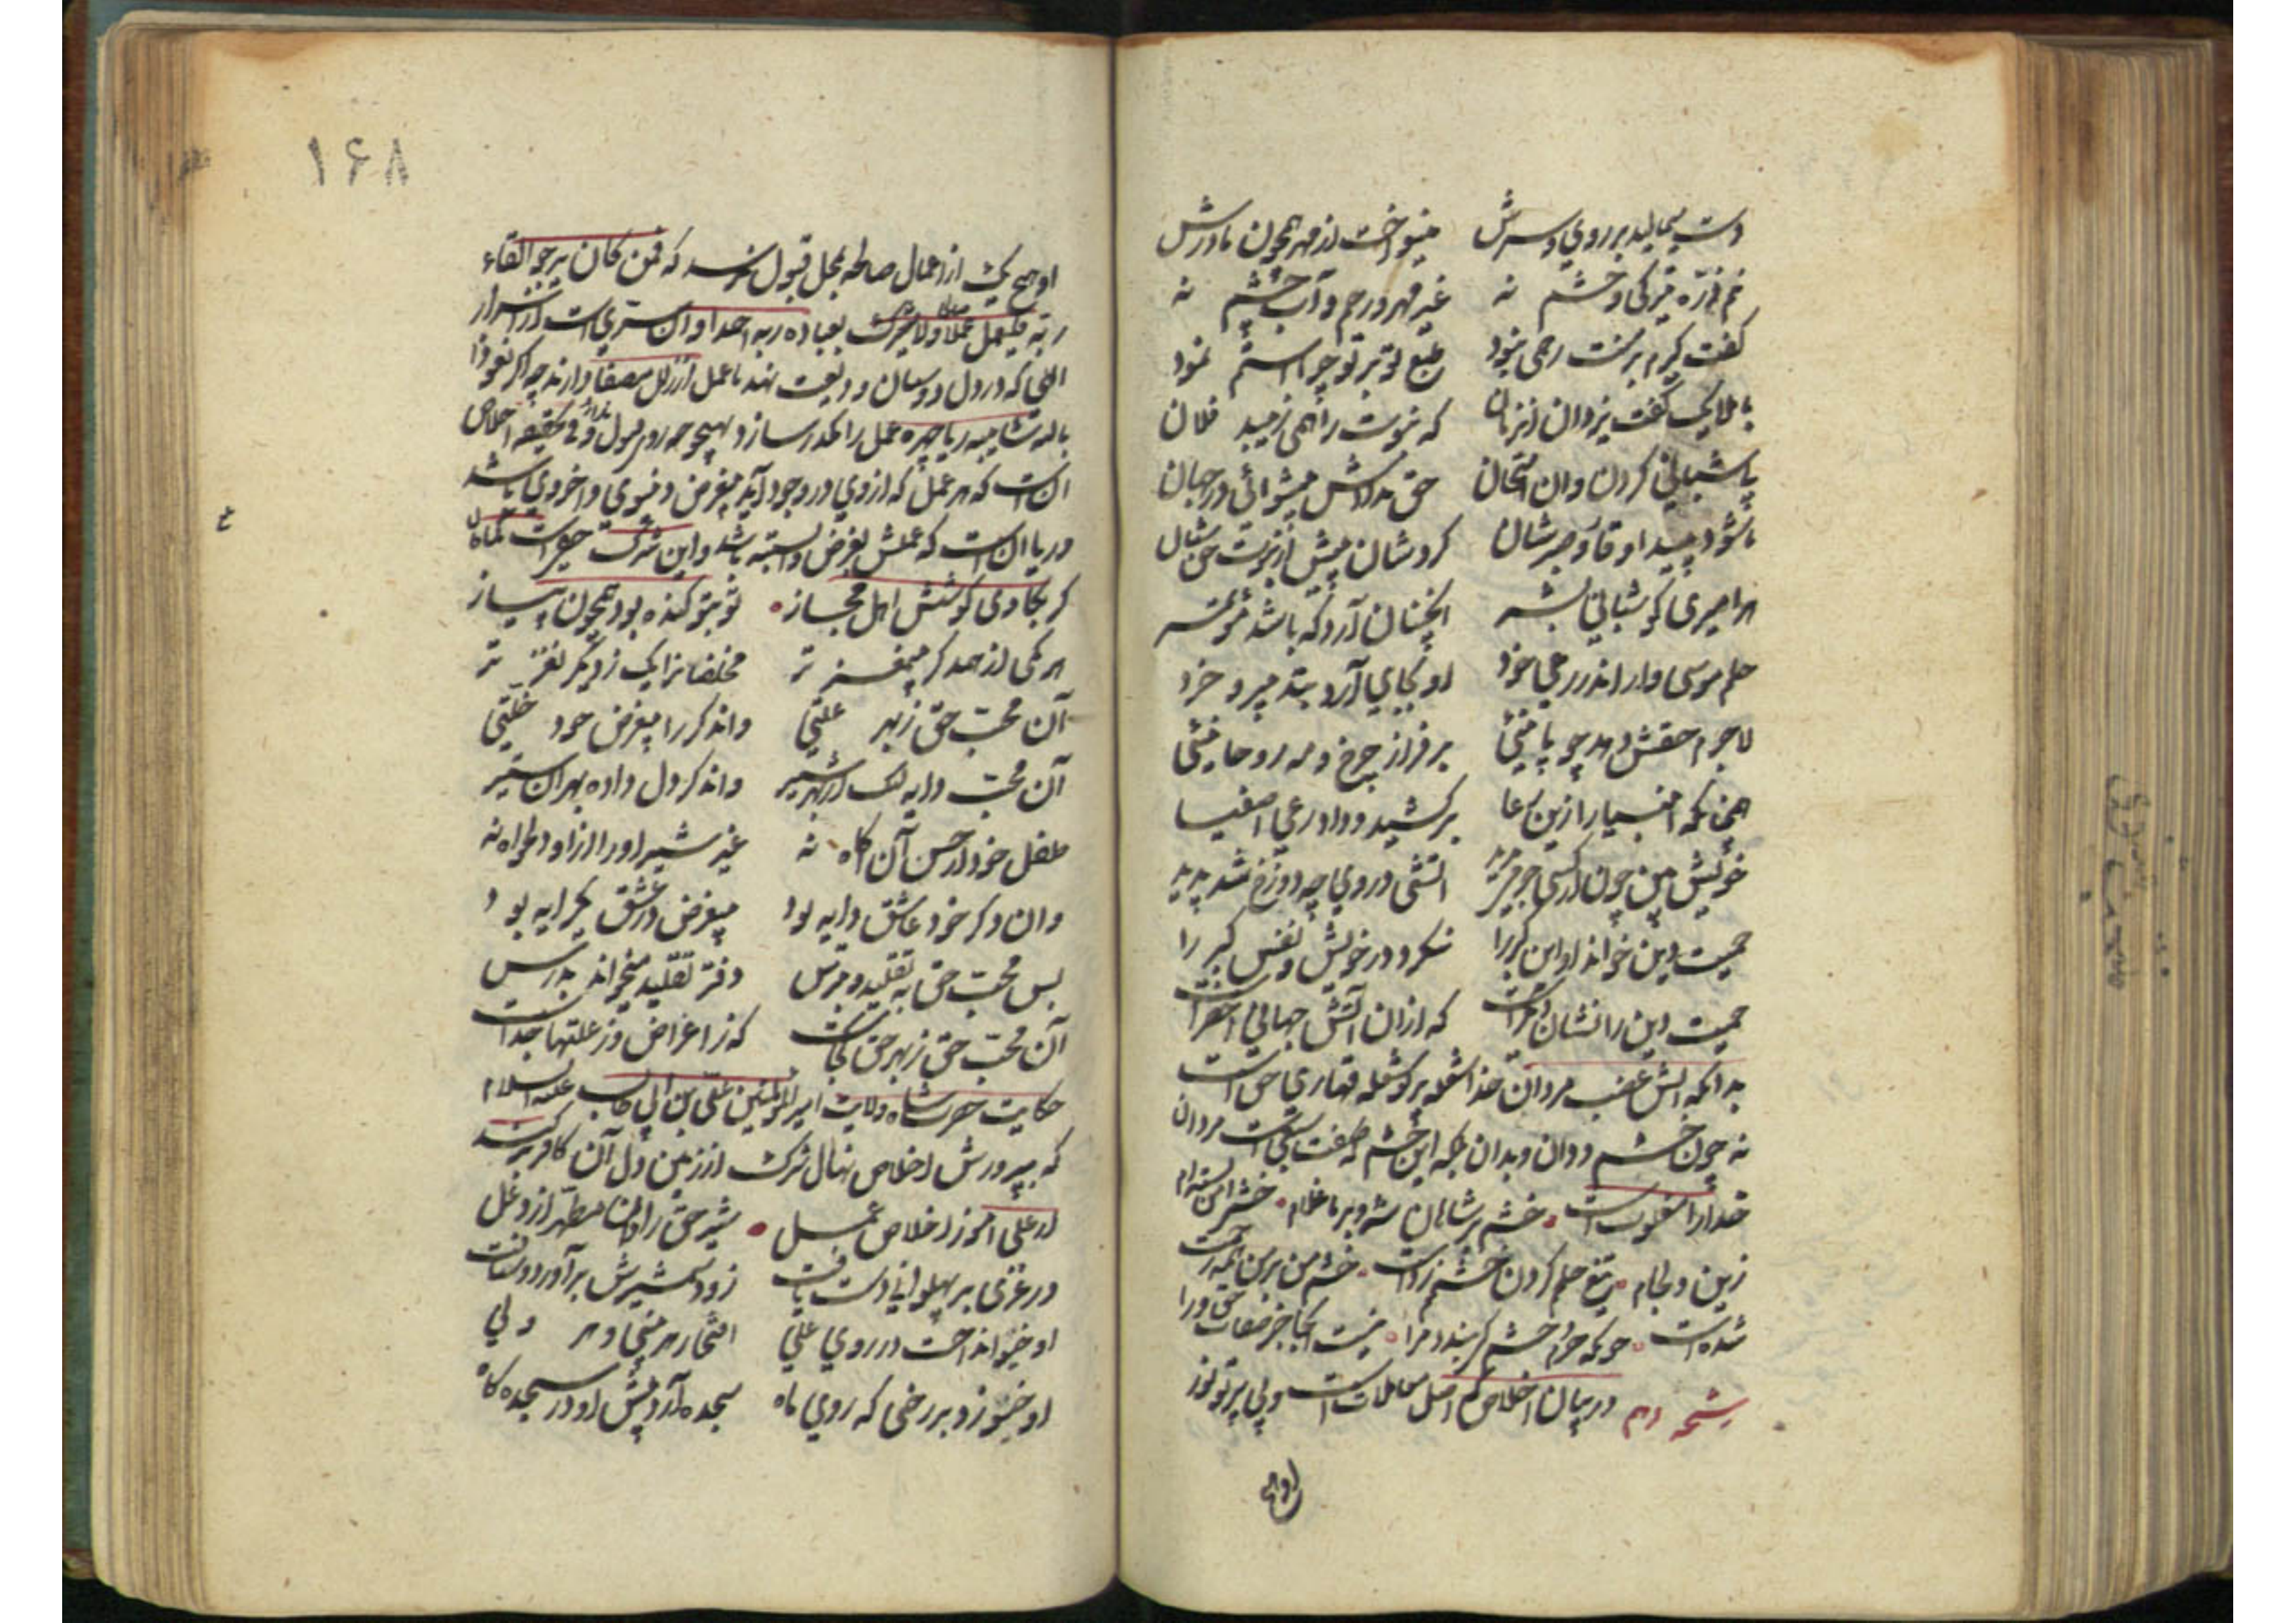 دست میمالید بر روی و سرش مینواخت از مهر همچون مادرش
نیم ذره تیرکی و خشم نه غیر مهر و رحم و آب چشم نه
کفت کیرم بر منت رحمی نبود طبع تو بر تو چرا استم نمود
با ملایک کفت یزدان آنزمان که نبوت را همی زیبد فلان
پاسبانی کردن و آن امتحان حق ندادش پیشوائی در جهان
تا شود پیدا وقار و صبرشان کردشان پیش از نبوت حق شبان
هر امیری کو شبانی بشر آنچنان آرد که باشد مؤتمر
حلم موسی وار اندر رعی خود او بجای آرد بتدبیر و خرد
لاجرم حقش دهد چوپانیی بر فراز چرخ و مه روحانیی
همچنانکه انبیا را زین رعا برکشید و داد رعی اصفیا
خویش بین چون از کسی جرمی بدید آتشی در وی چه دوزخ شد پدید
حمیت دین خواند او این کبر را ننکرد در خویش و نفس کبر را
حمیت دین را نشان دیکرست که از آن آتش جهانی اخضرست
بدانکه آتش غضب مردان خدا شعله پرکوشعله قهاری حق است
نه چون خشم ددان و بدان بلکه این خشم صفت سبعیست مردان
خدا را مغلوبست خشم بر شاهان شه و بر ما غلام خشم را من بسته‌ام
زین و لجام تیغ حلمم کردن خشمم زدست خشم من بر من همه رحمت
شدست چونکه حرم خشم کی بندد مرا نیست اینجا جز صفات حق درآ
رشحه دهم در بیان اخلاص که اصل معاملات است و بی پرتو نور
او هیچ
۱۶۸
او هیچ یک از اعمال صالحه بمحل قبول نرسد که فمن کان یرجوا لقاء
ربه فلیعمل عملا صالحا و لا یشرک بعباده ربه احدا و آن سریست از اسرار
الهی که در دل دوستان ودیعت نهد تا عمل از زلل مصفا دارند چه اکر نعوذا
بالله شایبه ریا چهره عمل را مکدر سازد بهیچوجه روی قبول ندارد و فی الحقیقه اخلاص
آنست که هر عمل که از وی در وجود آید بیغرض دنیوی و اخروی باشد
و ریا آنست که عملش بغرض وابسته باشد و این شرک خفی است
کر بکاوی کوشش اهل مجاز تو بتو کنده بود همچون پیاز
هر یکی از همدکر بیمغز تر مخلصانرا یک ز دیکر نغز تر
آن محب حق ز بهر علتی و آن دکر را بیغرض خود خلتی
آن محب دایه لیک از بهر شیر و آن دکر دل داده بهر آن ستیر
طفل خود از حسن آن آکاه نه غیر شیر او را ازو دلخواه نه
و آن دکر خود عاشق دایه بود بیغرض در عشق یکرایه بود
پس محب حق به تقلید و بترس دفتر تقلید میخواند بدرس
آن محب حق ز بهر حق کجاست که ز اغراض و ز علتها جداست
حکایت حضرت شاه ولایت امیرالمؤمنین علی بن ابی طالب علیه السلام
که بپرورش اخلاص نهال شرک از زمین دل آن کافر برکند
از علی آموز اخلاص عمل شیر حق را دان مطهر از دغل
در غزی بر پهلوانی دست یافت زود شمشیرش برآورد و شتافت
او خیو انداخت در روی علی افتخار هر نبی و هر ولی
او خیو زد بر رخی که روی ماه سجده آرد پیش او در سجده کاه